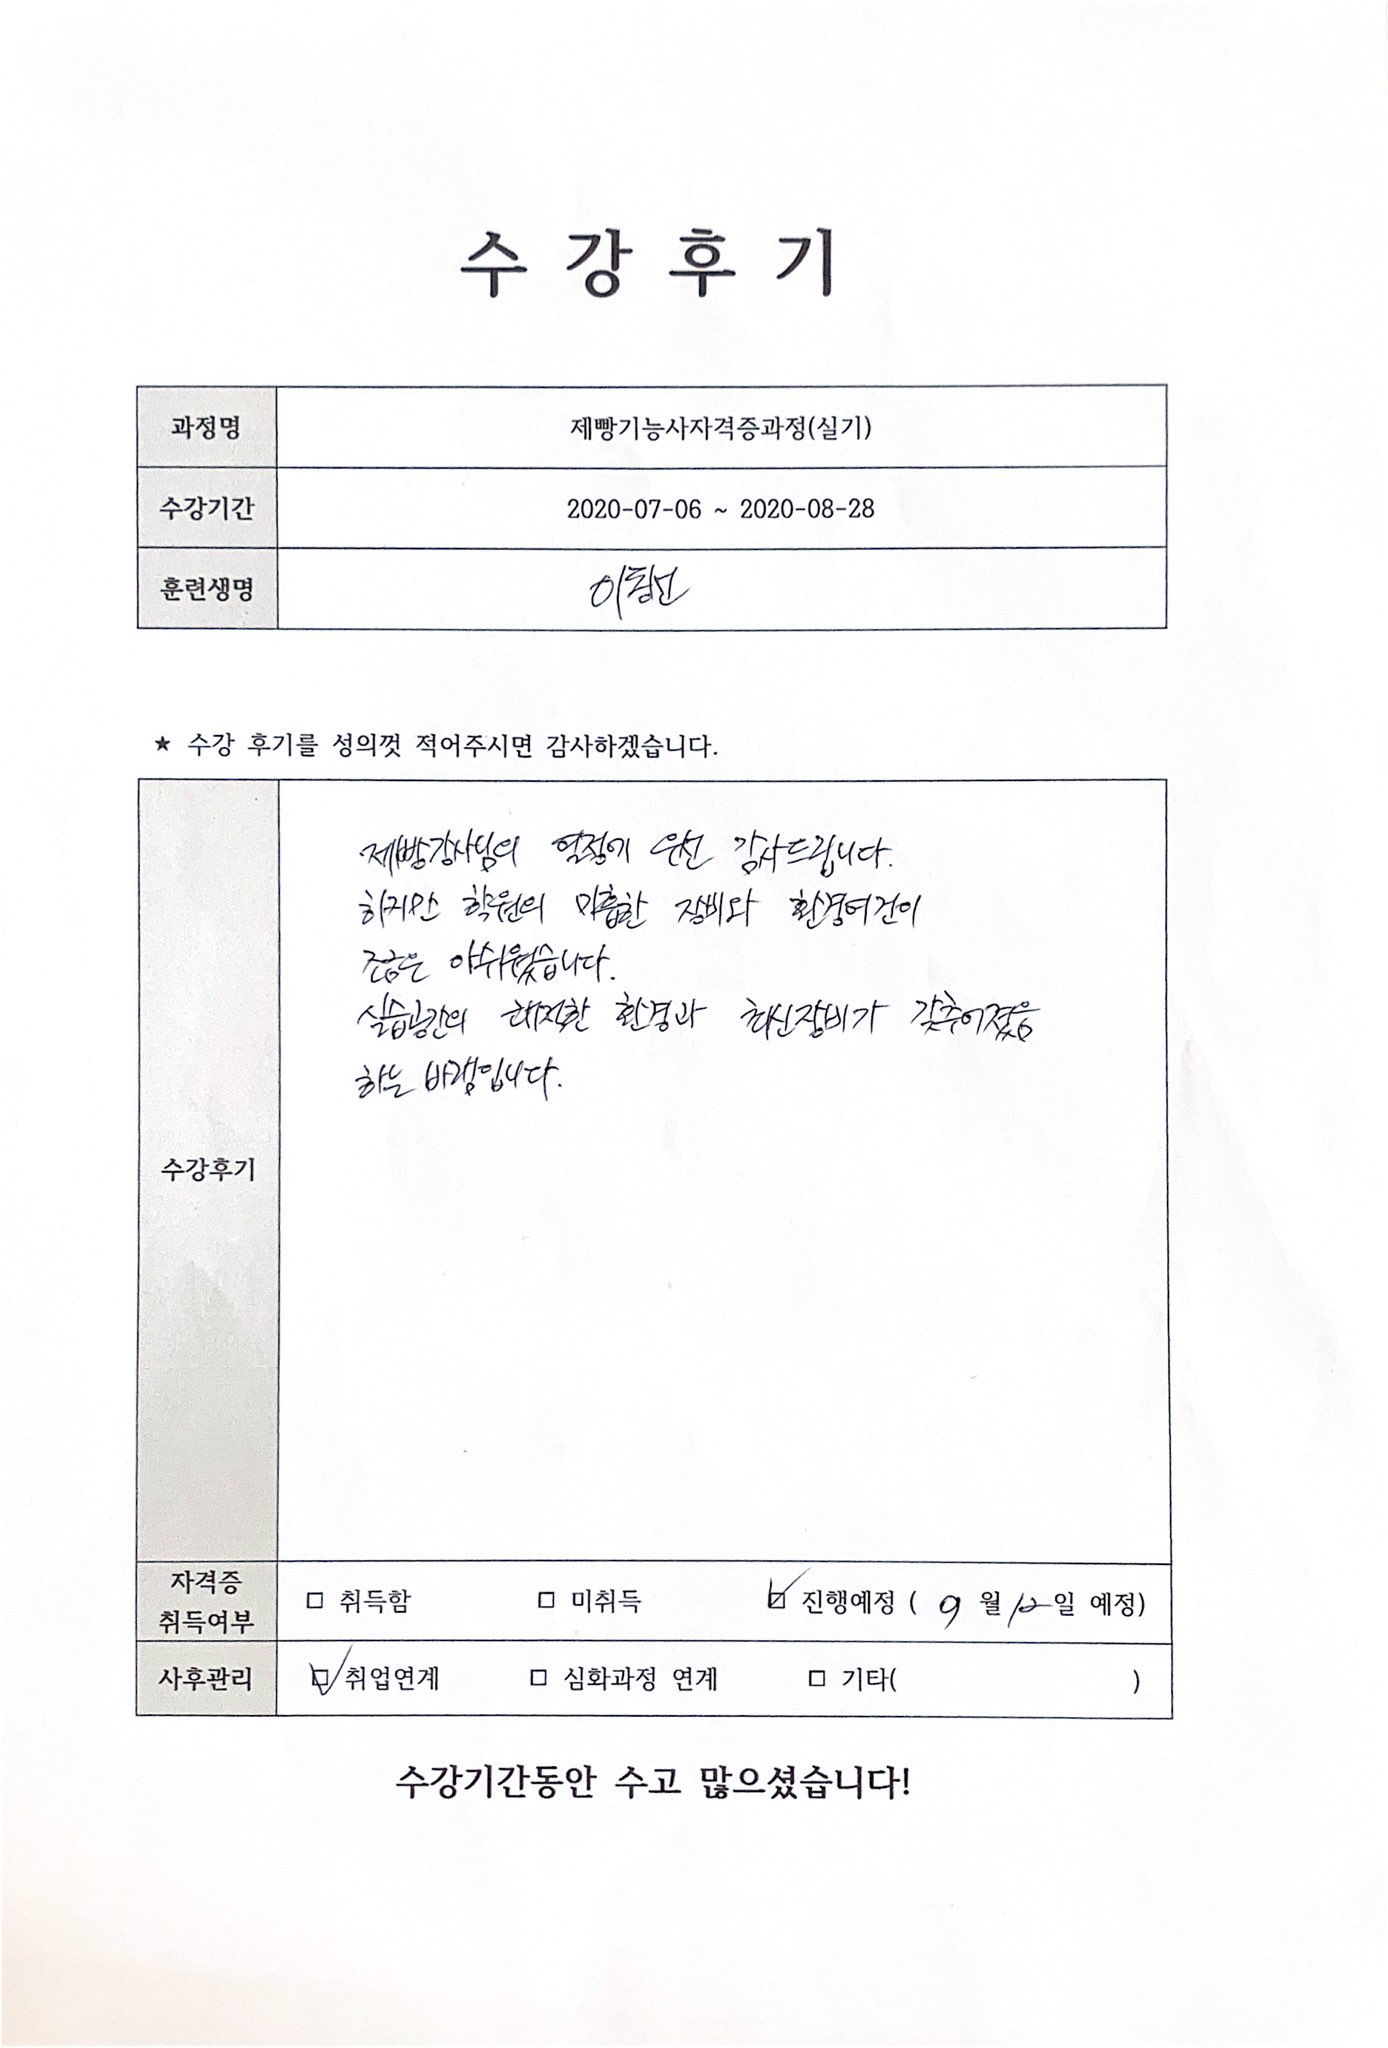 수 강 후 기
과정명 제빵기능사자격증과정(실기)
수강기간 2020-07-06 ~ 2020-08-28
훈련생명
★ 수강 후기를 성의껏 적어주시면 감사하겠습니다.
제빵강사님의 열정에 우선 감사드립니다.
하지만 학원의 미흡한 장비와 환경여건이
조금은 아쉬웠습니다.
실습공간의 쾌적한 환경과 최신장비가 갖추어졌음
하는 바램입니다.
수강후기
자격증 취득여부 □ 취득함 □ 미취득 ☑ 진행예정 ( 9 월 12 일 예정)
사후관리 ☑ 취업연계 □ 심화과정 연계 □ 기타( )
수강기간동안 수고 많으셨습니다!